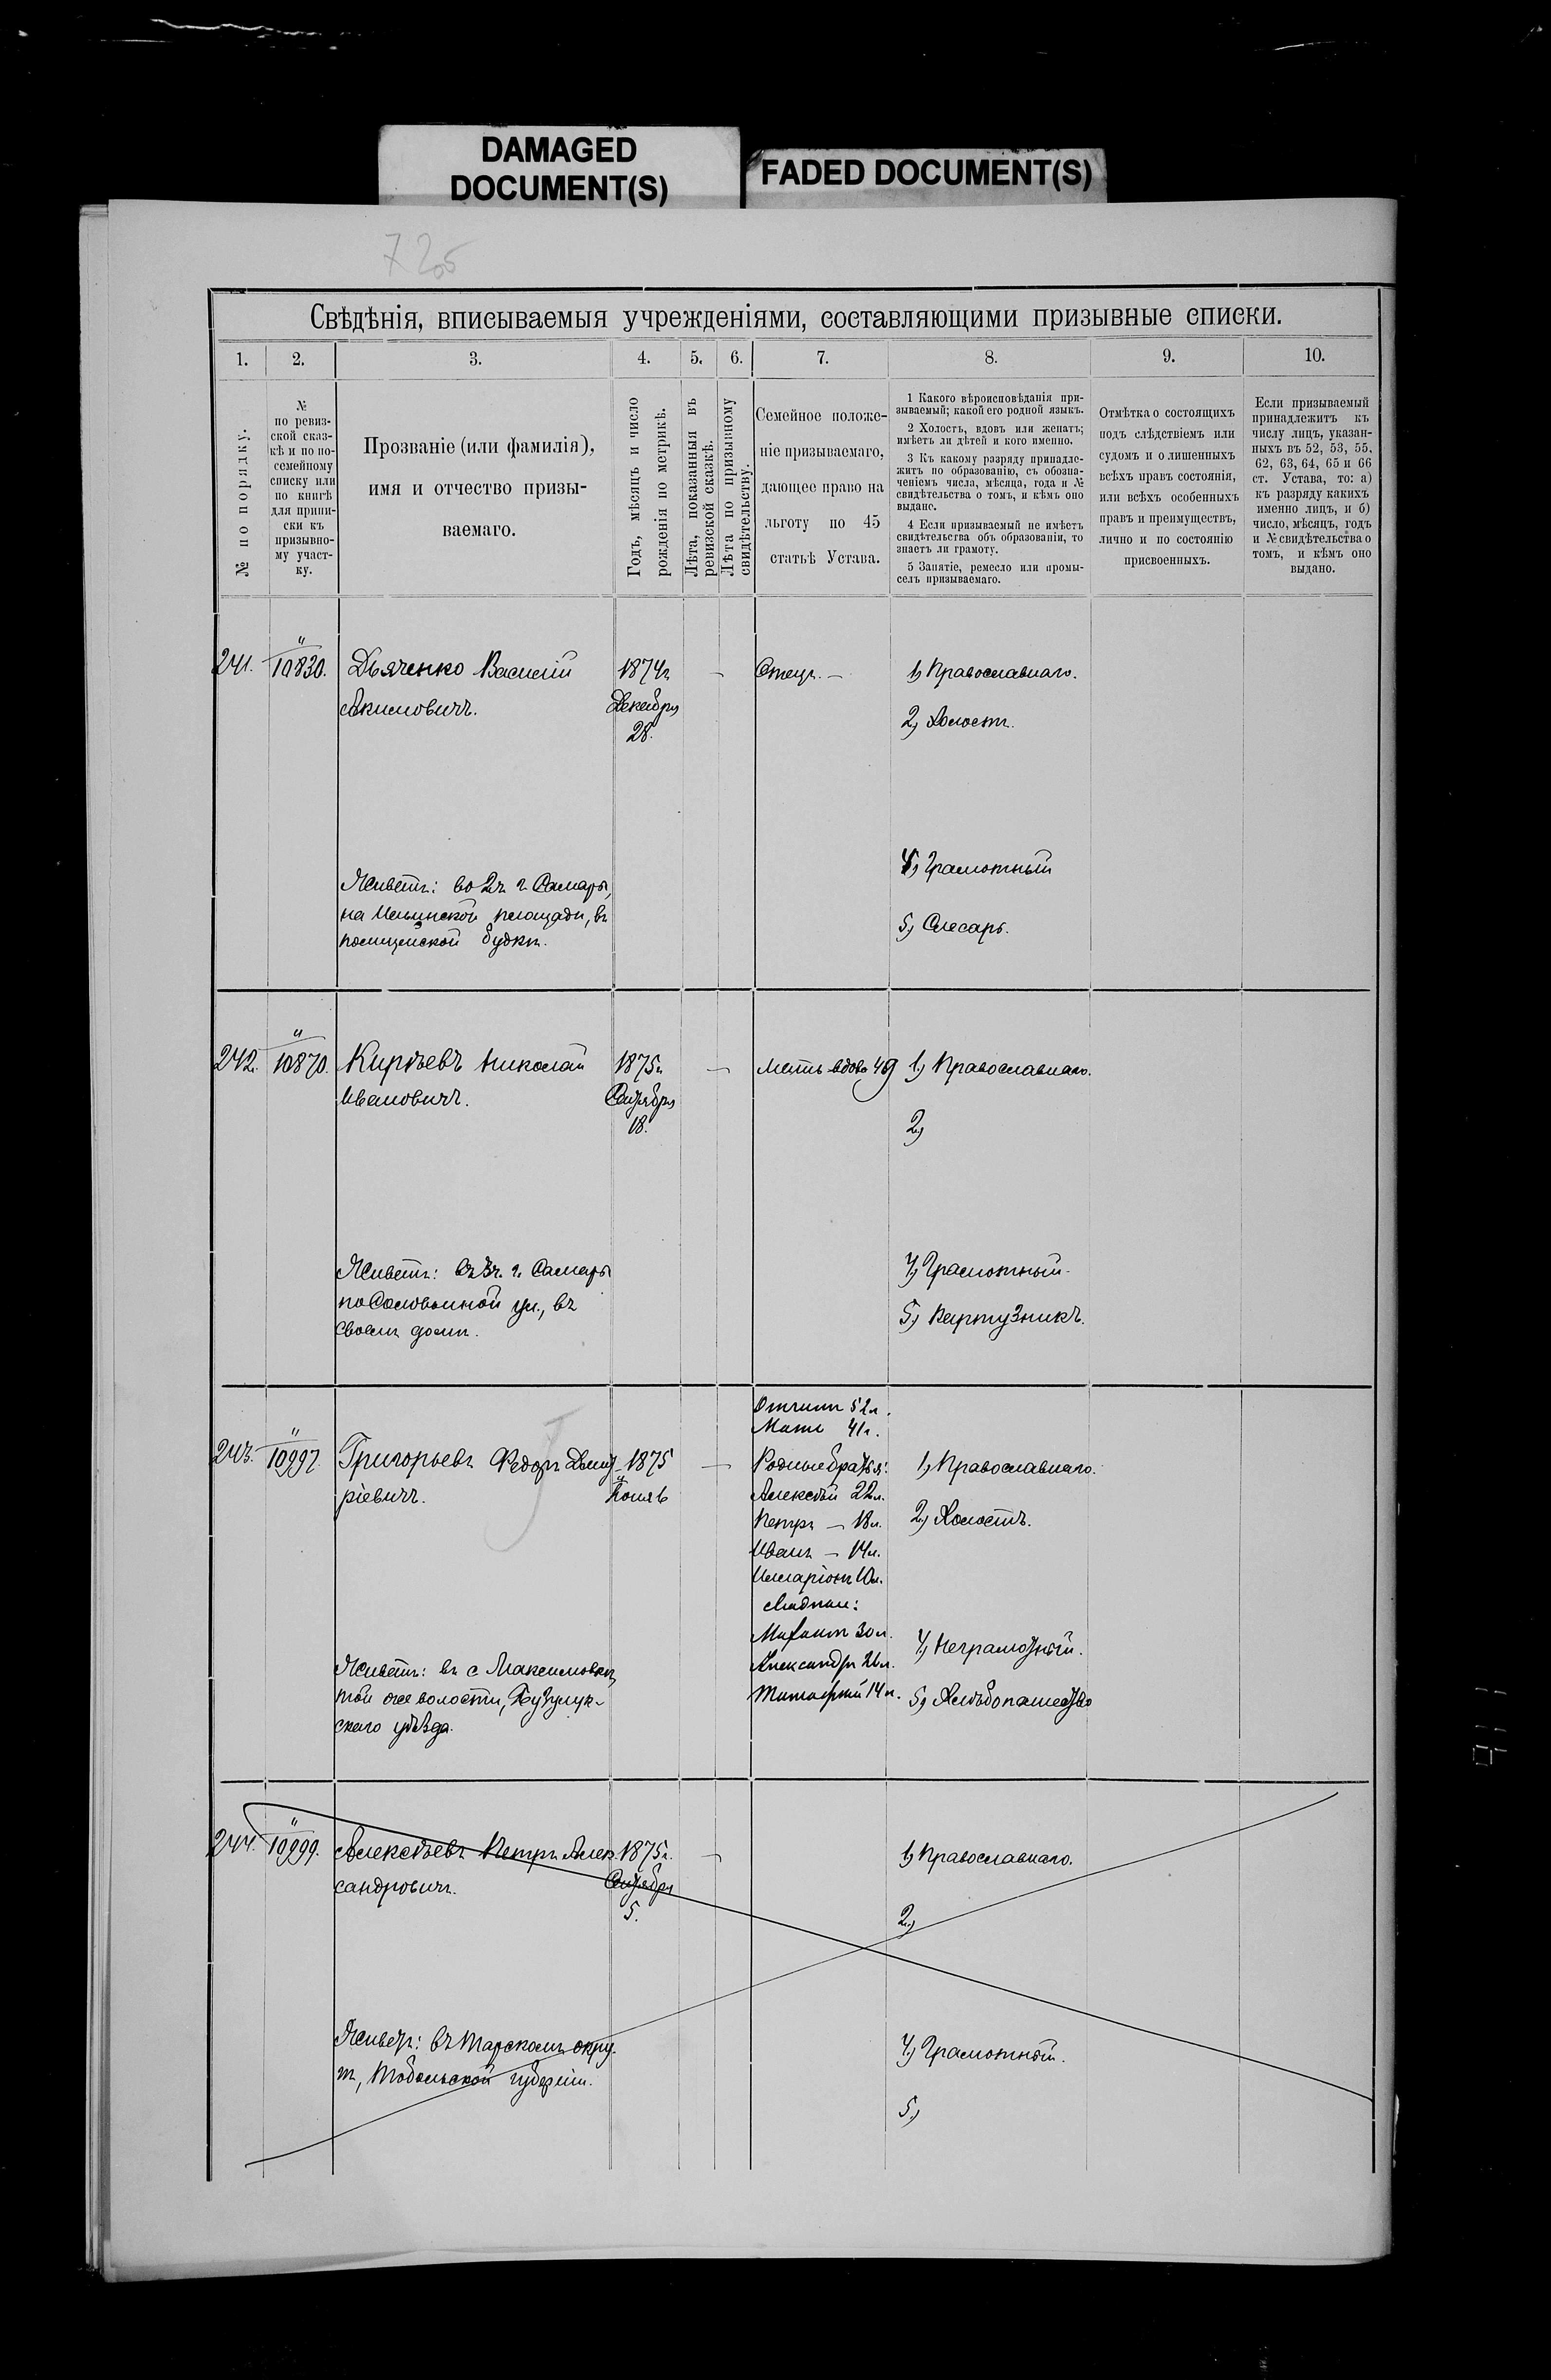 DAMAGED
DOCUMENT(S)
FADED DOCUMENT(S)
725
Свѣдѣнія, вписываемыя учрежденіями, составляющими призывные списки.
1. 2. 3. 4. 5. 6. 7. 8. 9. 10.
№ по порядку.
№
по ревиз-
ской сказ-
кѣ и по по-
семейному
списку или
по книгѣ
для припи-
ски къ
призывно-
му участ-
ку.
Прозваніе (или фамилія),
имя и отчество призы-
ваемаго.
Годъ, мѣсяцъ и число
рожденія по метрикѣ.
Лѣта, показанныя въ
ревизской сказкѣ.
Лѣта по призывному
свидѣтельству.
Семейное положе-
ніе призываемаго,
дающее право на
льготу по 45
статьѣ Устава.
1 Какого вѣроисповѣданія при-
зываемый; какой его родной языкъ.
2 Холостъ, вдовъ или женатъ;
имѣетъ ли дѣтей и кого именно.
3 Къ какому разряду принадле-
житъ по образованію, съ обозна-
ченіемъ числа, мѣсяца, года и №
свидѣтельства о томъ, и кѣмъ оно
выдано.
4 Если призываемый не имѣетъ
свидѣтельства объ образованіи, то
знаетъ ли грамоту.
5 Занятіе, ремесло или промы-
селъ призываемаго.
Отмѣтка о состоящихъ
подъ слѣдствіемъ или
судомъ и о лишенныхъ
всѣхъ правъ состоянія,
или всѣхъ особенныхъ
правъ и преимуществъ,
лично и по состоянію
присвоенныхъ.
Если призываемый
принадлежитъ къ
числу лицъ, указан-
ныхъ въ 52, 53, 55,
62, 63, 64, 65 и 66
ст. Устава, то: а)
къ разряду какихъ
именно лицъ, и б)
число, мѣсяцъ, годъ
и № свидѣтельства о
томъ, и кѣмъ оно
выдано.
241.
"
10830.
Дьяченко Василій
Акимовичъ.
Живетъ: во 2 ч. г. Самары,
на Ильинской площади, въ
полицейской будкѣ.
1874 г.
Декабря
28.
—
Отецъ. —
1) Православнаго.
2) Холостъ.
4) Грамотный
5) Слесарь.
242.
"
10870.
Кирѣевъ Николай
Ивановичъ.
Живетъ: въ 3 ч. г. Самары
по Соловьиной ул., въ
своемъ домѣ.
1875 г.
Сентября
18.
—
Мать вдова 49
1) Православнаго.
2)
4) Грамотный.
5) Картузникъ.
243.
"
10997.
Григорьевъ Федоръ Дмит-
ріевичъ.
Живетъ: въ с. Максимовкѣ,
той же волости, Бузулук-
скаго уѣзда.
1875
Іюнь
—
Отчимъ 52 л.
Мать 41 г.
Родные братья:
Алексѣй 22 л.
Петръ — 18 л.
Иванъ — 14 л.
Илларіонъ 10 л.
Сводные:
30 л.
Александръ 26 л.
Тимофей 14 л.
1) Православнаго.
2) Холостъ.
4) Неграмотный.
5) Хлѣбопашество
244.
"
10999.
Алексѣевъ Петръ Алек-
сандровичъ.
Живетъ: въ Тарскомъ окру-
гѣ, Тобольской губерніи.
1875 г.
Сентября
5.
—
1) Православнаго.
2)
4) Грамотный.
5)